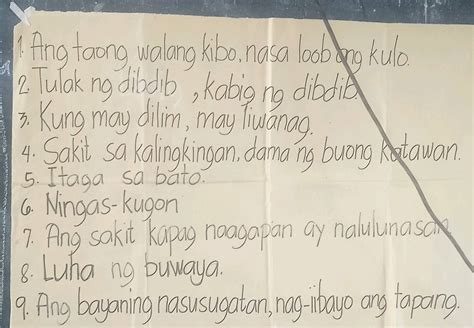 1. Ang taong walang kibo, nasa loob ang kulo.
2. Tulak ng dibdib, kabig ng dibdib.
3. Kung may dilim, may liwanag.
4. Sakit sa kalingkingan, dama ng buong katawan.
5. Itaga sa bato.
6. Ningas-kugon
7. Ang sakit kapag naagapan ay nalulunasan
8. Luha ng buwaya.
9. Ang bayaning nasusugatan, nag-iibayo ang tapang.